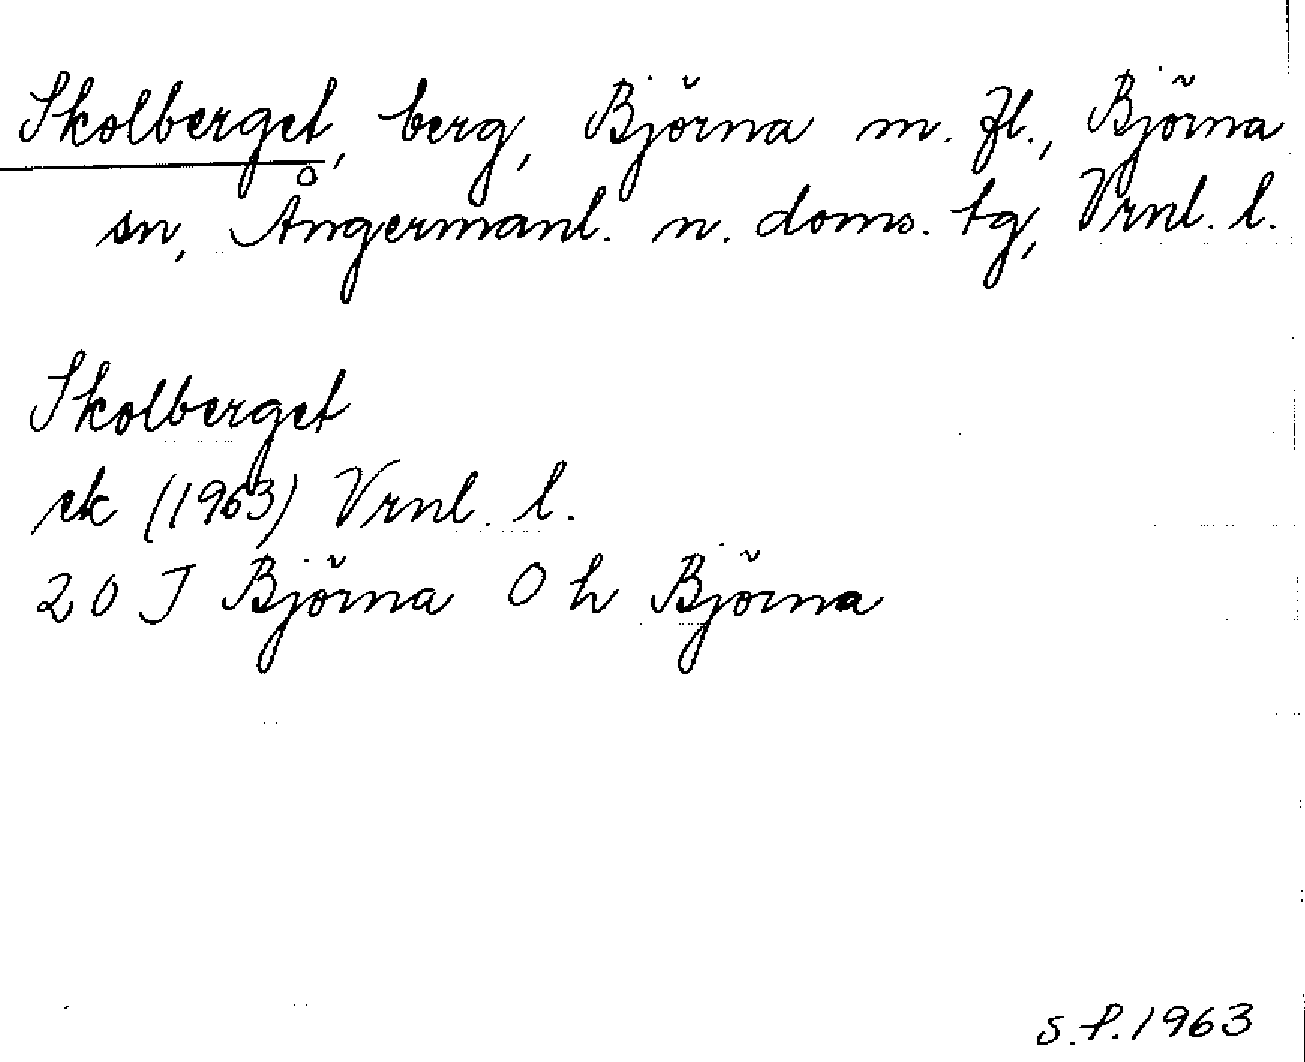 Skolberget, berg, Björna m. fl., Björna
sn, Ångermanl. n. doms. tg, Vrnl. l.
Skolberget
ek (1963) Vrnl. l.
20 J Björna 0 h Björna
S.f. 1963